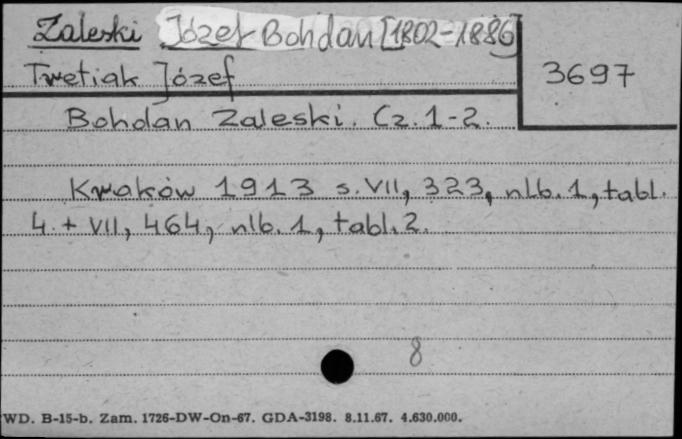 Zaleski Józef Bohdan [1802-1886]
Tretiak Józef
3697
Bohdan Zaleski. Cz. 1-2.
Kraków 1913 s. VII, 323, nlb. 1, tabl.
4. + VII, 464, nlb. 1, tabl. 2.
8
WD. B-15-b. Zam. 1726-DW-On-67. GDA-3198. 8.11.67. 4.630.000.